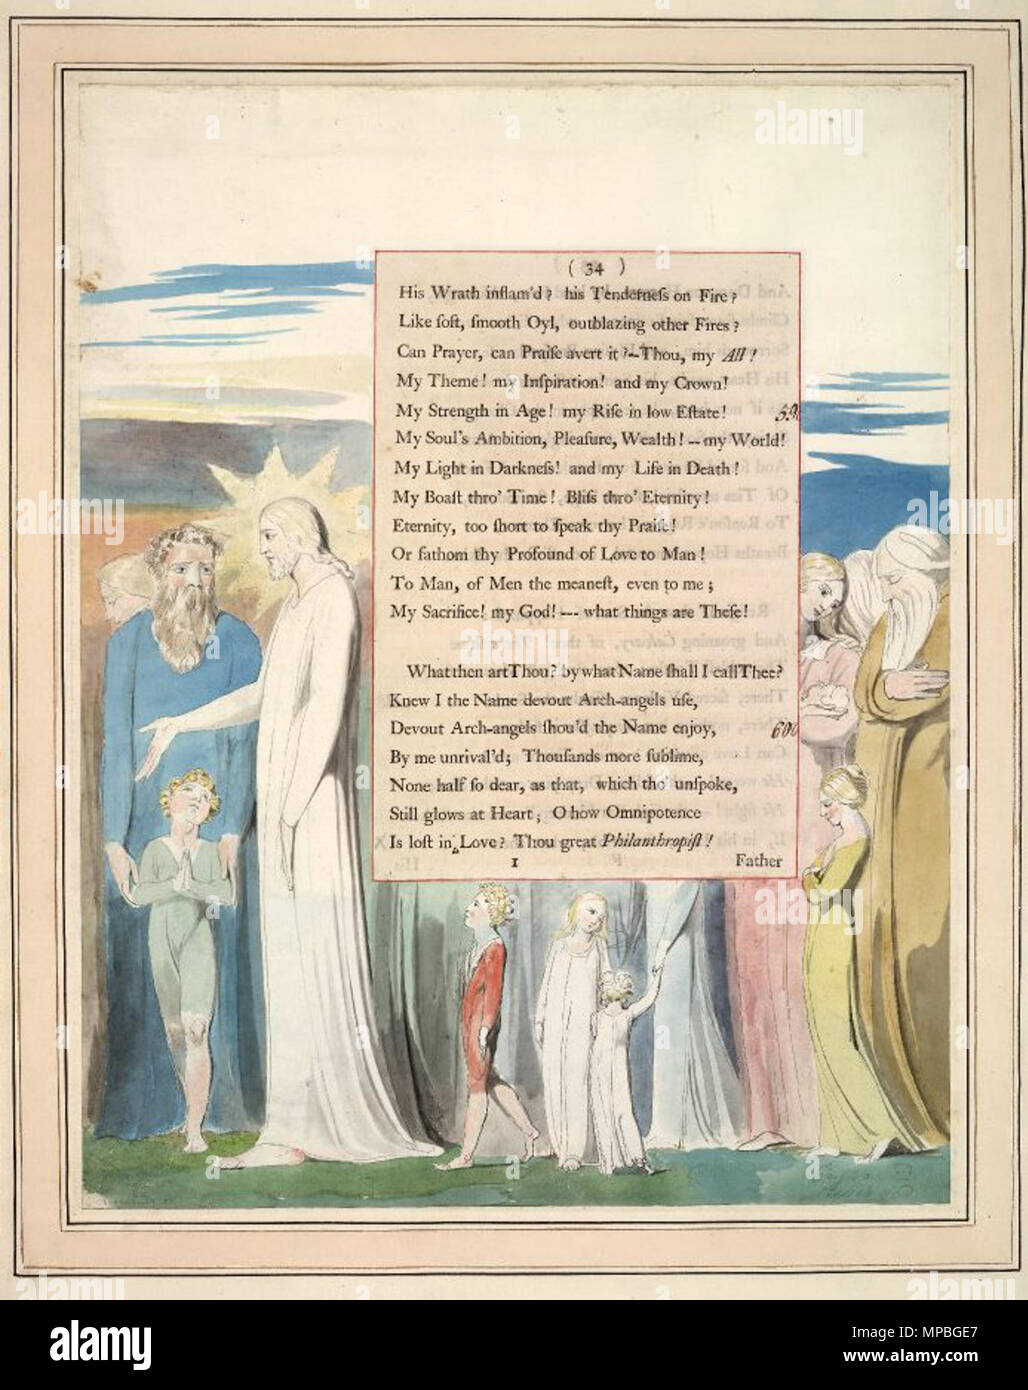 ( 34 )
His Wrath inflam'd? his Tenderneſs on Fire?
Like ſoft, ſmooth Oyl, outblazing other Fires?
Can Prayer, can Praiſe avert it?--Thou, my All!
My Theme! my Inſpiration! and my Crown!
My Strength in Age! my Riſe in low Eſtate!
My Soul's Ambition, Pleaſure, Wealth! -- my World!
My Light in Darkneſs! and my Life in Death!
My Boaſt thro' Time! Bliſs thro' Eternity!
Eternity, too ſhort to ſpeak thy Praiſe!
Or fathom thy Profound of Love to Man!
To Man, of Men the meaneſt, even to me;
My Sacrifice! my God! --- what things are Theſe!
What then art Thou? by what Name ſhall I call Thee?
Knew I the Name devout Arch-angels uſe,
Devout Arch-angels ſhou'd the Name enjoy, 600
By me unrival'd; Thouſands more ſublime,
None half ſo dear, as that, which tho' unſpoke,
Still glows at Heart; O how Omnipotence
Is loſt in Love? Thou great Philanthropiſt!
I Father
alamy
alamy
alamy
a
a
a
a
a
alamy
Image ID: MPBGE7
www.alamy.com